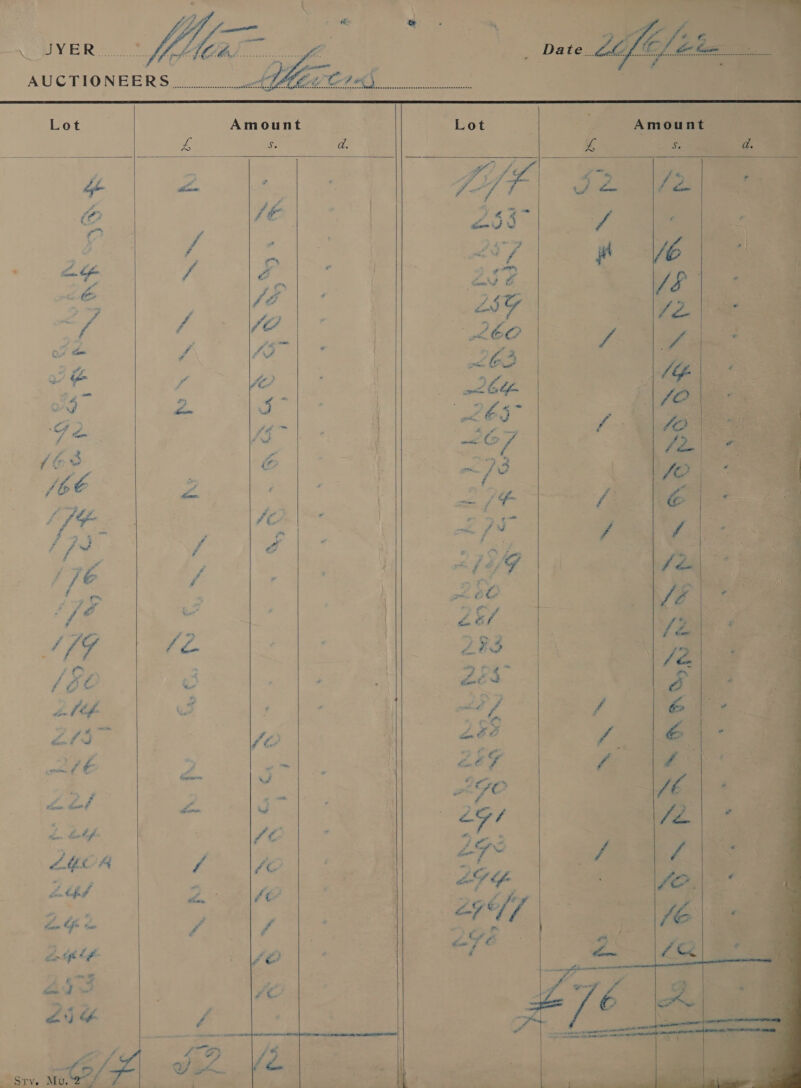 UYER Mus Date 20/6/22
AUCTIONEERS Stevens
Lot Amount
£ s. d.
4 2 " "
6 16 "
8 1 " "
24 1 8 "
26 18 "
27 1 10 "
32 1 15 "
34 1 10 "
35 2 5 "
92 15 "
163 6 "
166 2 " "
174 10 "
175 1 8 "
176 1 " "
178 3 " "
179 12 " "
180 3 " "
214 3 " "
215 10 "
216 2 5 "
221 2 5 "
224 10 "
240A 1 10 "
241 2 10 "
242 1 1 "
244 10 "
253 10 "
254 1 "
C/f 52 12
Lot Amount
£ s. d.
B/f 52 12 "
255 1 " "
257 16 "
258 18 "
259 12 "
260 1 1 "
263 14 "
264 10 "
265 1 10 "
267 12 "
273 10 "
274 1 6 "
275 1 1 "
278/9 12 "
280 18 "
281 12 "
283 12 "
285 8 "
287 1 6 "
288 1 6 "
289 1 1 "
290 16 "
291 12 "
293 1 1 "
294 10 "
296/7 16 "
298 2 10 "
£76 2
Srv. Mu. 2